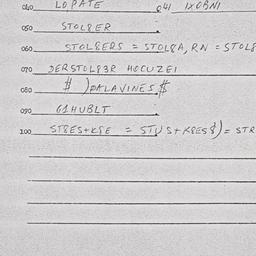 040 LOPATE 041 IXOBNI
050 STOL8ER
060 STOL8ERS = STOL8A, RN = STOL8
070 DERSTOL83R HOCUZEI
080 $ )DALAVINES $
090 61HUBLT
100 ST8ES+K8E = STUS+K8ES8) = STR